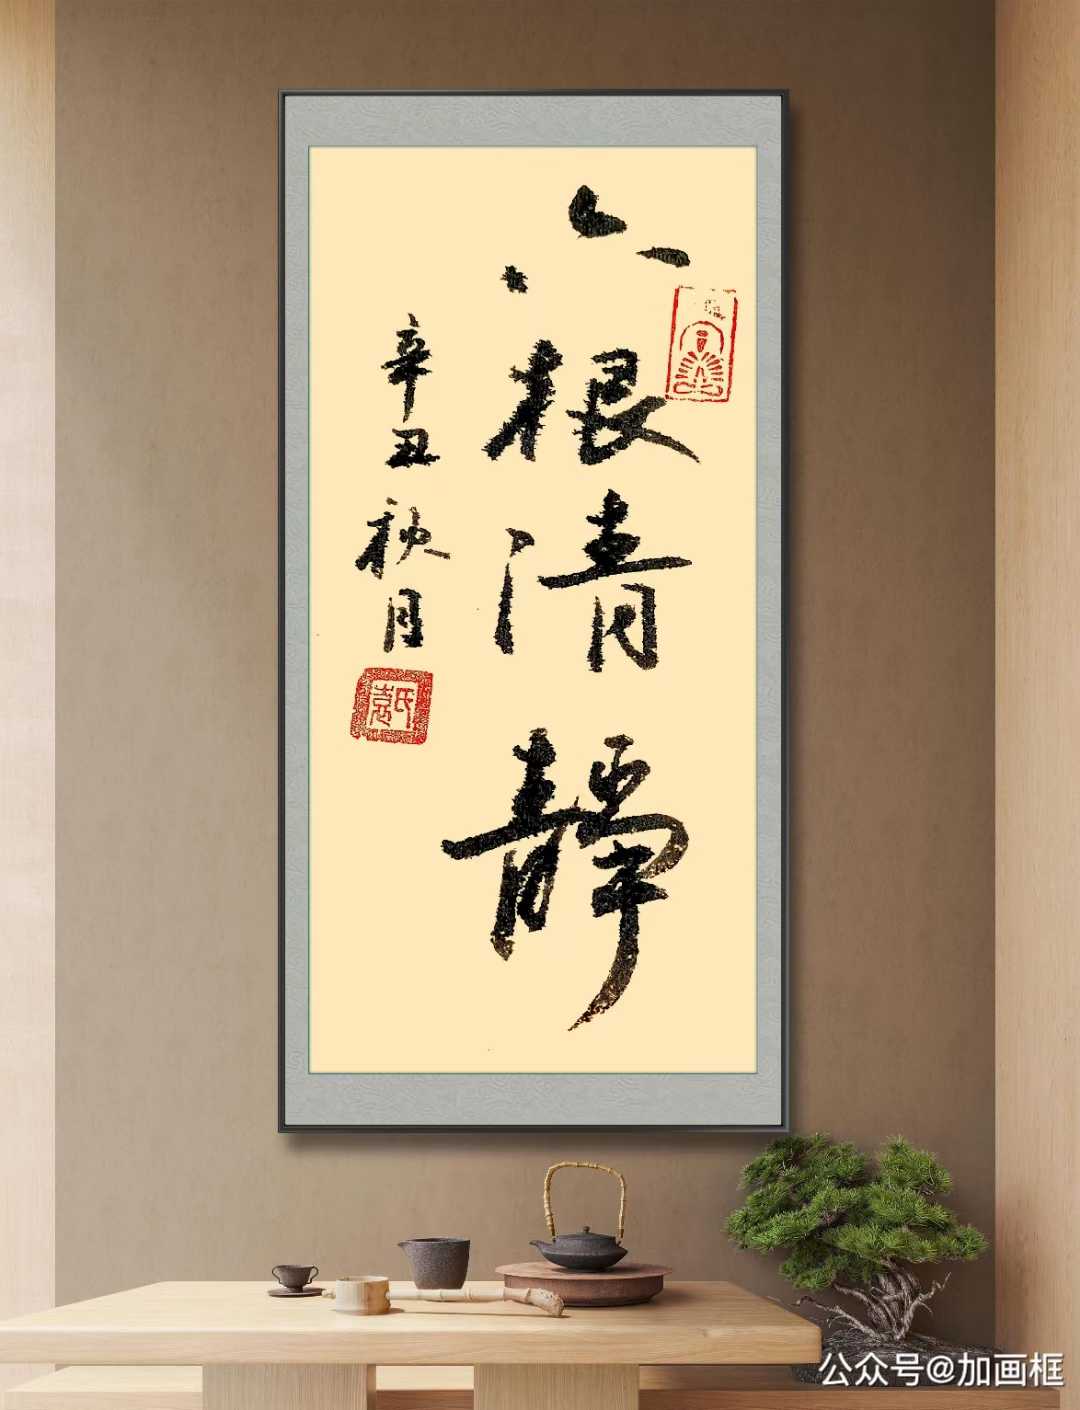 六根清静
辛丑秋月
袁氏
公众号@加画框